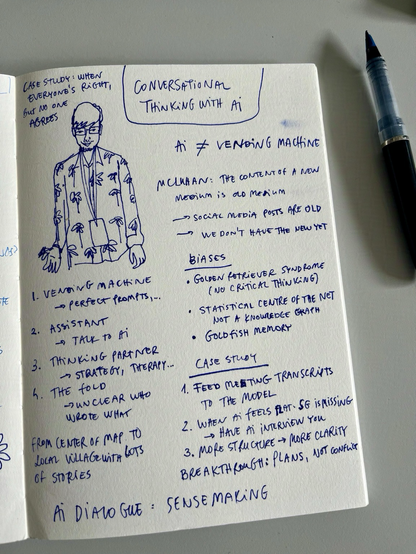 CASE STUDY: WHEN
EVERYONE'S RIGHT,
BUT NO ONE
AGREES
CONVERSATIONAL
THINKING WITH Ai
Ai ≠ VENDING MACHINE
MCLUHAN: THE CONTENT OF A NEW
MEDIUM IS OLD MEDIUM
→ SOCIAL MEDIA POSTS ARE OLD
→ WE DON'T HAVE THE NEW YET
BIASES
• GOLDEN RETRIEVER SYNDROME
(NO CRITICAL THINKING)
• STATISTICAL CENTRE OF THE NET
NOT A KNOWLEDGE GRAPH
• GOLDFISH MEMORY
1. VENDING MACHINE
→ PERFECT PROMPTS,...
2. ASSISTANT
→ TALK TO Ai
3. THINKING PARTNER
→ STRATEGY, THERAPY...
4. THE FOLD
→ UNCLEAR WHO
WROTE WHAT
FROM CENTER OF MAP TO
LOCAL VILLAGE WITH LOTS
OF STORIES
CASE STUDY
1. FEED MEETING TRANSCRIPTS
TO THE MODEL
2. WHEN AI FEELS FLAT, IS MISSING
→ HAVE AI INTERVIEW YOU
3. MORE STRUCTURE → MORE CLARITY
BREAKTHROUGH: PLANS, NOT CONFLICT
Ai DIALOGUE: SENSEMAKING